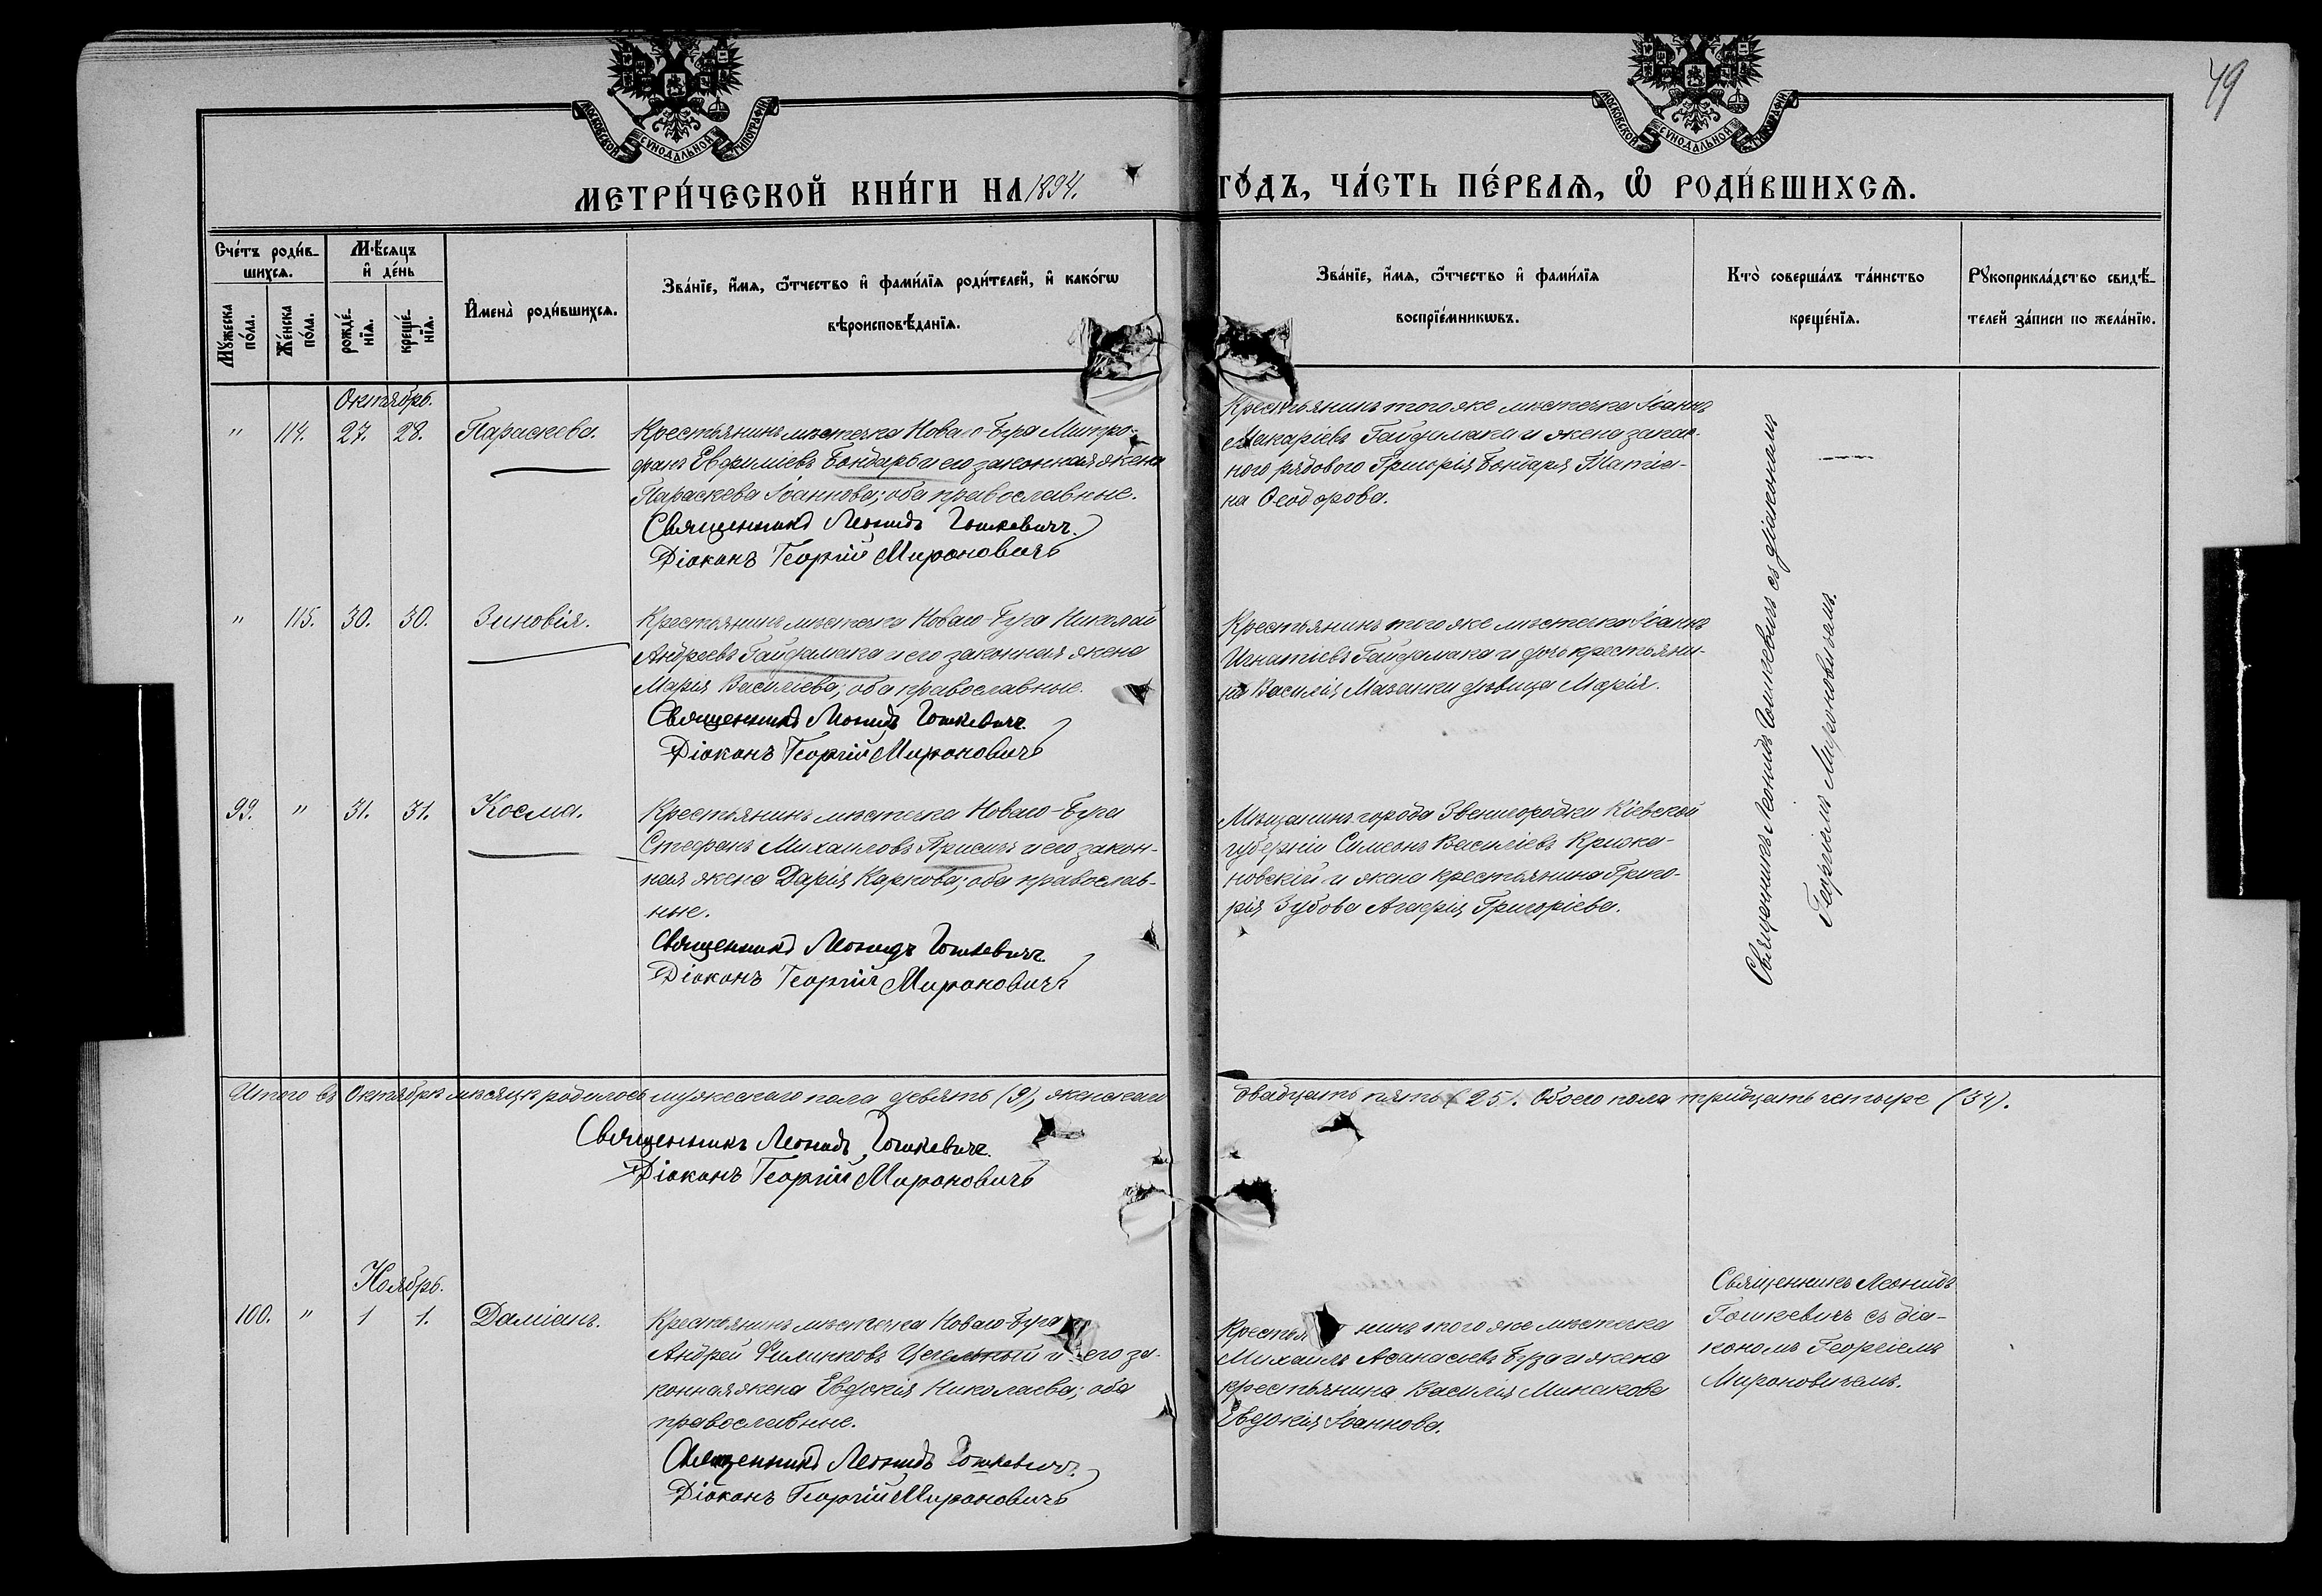 49
МОСКОВСКОЙ СѴНОДАЛЬНОЙ ТИПОГРАФІИ
МОСКОВСКОЙ СѴНОДАЛЬНОЙ ТИПОГРАФІИ
МЕТРИ́ЧЕСКОЙ КНИ́ГИ НА 1894. ГО́ДЪ, ЧА́СТЬ ПЕ́РВАѦ, Ѽ РОДИ́ВШИХСѦ.
Сче́тъ роди́в-
шихсѧ.
Мѣ́сѧцъ
и҆ де́нь
Мꙋ́жеска
по́ла.
Же́нска
по́ла.
рожде́-
нїѧ.
креще́-
нїѧ.
И҆мена̀ роди́вшихсѧ.
Зва́нїе, и҆́мѧ, ѻ҆́тчество и҆ фами́лїѧ роди́телей, и҆ како́гѡ
вѣроисповѣ́данїѧ.
Зва́нїе, и҆́мѧ, ѻ҆́тчество и҆ фами́лїѧ
воспрїе́мникѡвъ.
Кто̀ соверша́лъ та́инство
креще́нїѧ.
Рꙋкоприкла́дство свидѣ́-
телей за́писи по жела́нїю.
Октябрь.
" 114. 27. 28. Параскева.
Крестьянинъ мѣстечка Новаго-Буга Митро-
фанъ Евфиміевъ Бондарь и его законная жена
Параскева Іоаннова; оба православные.
Священникъ Леонидъ Гошкевичъ.
Діаконъ Георгій Мироновичъ
Крестьянинъ того же мѣстечка Іоаннъ
Макаріевъ Гайдамака и жена
рядового Григорія Бондаря Татіа-
на Ѳеодорова.
Священникъ Леонидъ Гошкевичъ съ діакономъ
Георгіемъ Мироновичемъ.
" 115. 30. 30. Зиновія.
Крестьянинъ мѣстечка Новаго-Буга Николай
Андреевъ Гайдамака и его законная жена
Марія Василіева; оба православные.
Священникъ Леонидъ Гошкевичъ
Діаконъ Георгій Мироновичъ
Крестьянинъ того же мѣстечка Іоаннъ
Игнатіевъ Гайдамака и дочь крестьяни-
на Василія Мазанки дѣвица Марія.
99. " 31. 31. Косма.
Крестьянинъ мѣстечка Новаго-Буга
Стефанъ Михаиловъ и его закон-
ная жена Дарія Карпова; оба православ-
ные.
Священникъ Леонидъ Гошкевичъ
Діаконъ Георгій Мироновичъ
Мѣщанинъ города Звенигородки Кіевской
губерніи Симеонъ Василіевъ Крижа-
новскій и жена крестьянина Григо-
рія Зубова Агафія Григоріева.
Итого въ Октябрѣ мѣсяцѣ родилось мужескаго пола девять (9), женскаго двадцать пять (25). Обоего пола тридцать четыре (34).
Священникъ Леонидъ Гошкевичъ.
Діаконъ Георгій Мироновичъ
Ноябрь.
100. " 1 1. Даміанъ.
Крестьянинъ мѣстечка Новаго-Буга
Андрей и его за-
конная жена Евдокія Николаева; оба
православные.
Священникъ Леонидъ Гошкевичъ.
Діаконъ Георгій Мироновичъ
Крестьянинъ того же мѣстечка
Михаилъ Аѳанасіевъ и жена
крестьянина Василія Минакова
Евдокія Іоаннова.
Священникъ Леонидъ
Гошкевичъ съ діа-
кономъ Георгіемъ
Мироновичемъ.